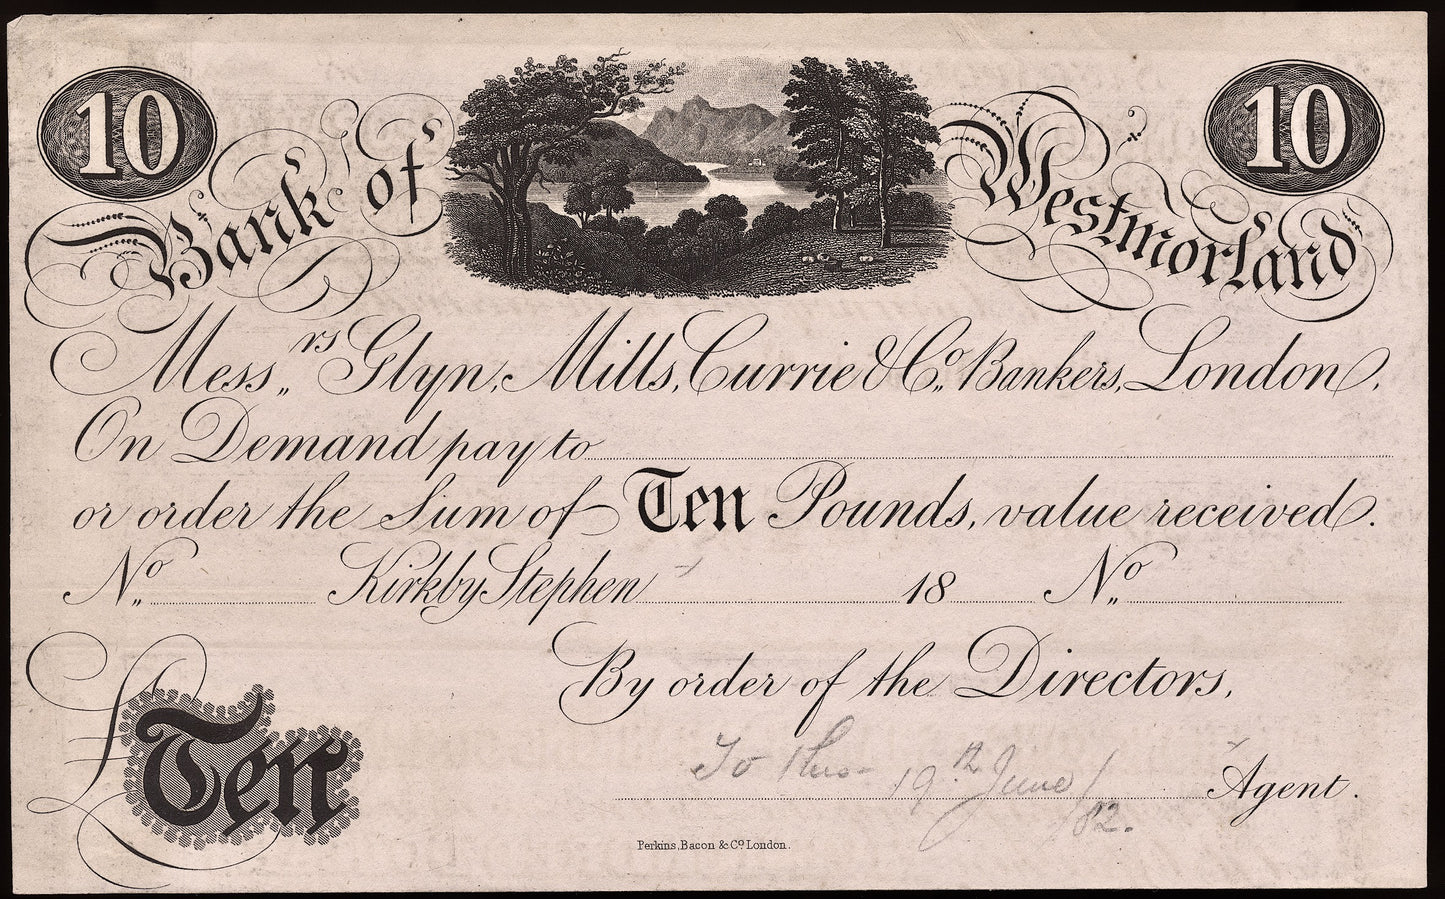 10 10
Bank of Westmorland
Mess,,rs Glyn, Mills, Currie & Co,, Bankers, London.
On Demand pay to
or order the Sum of Ten Pounds, value received.
No,, Kirkby Stephen 18 No,,
By order of the Directors,
£Ten
To this 19th June / 82.
Agent.
Perkins, Bacon & Co London.